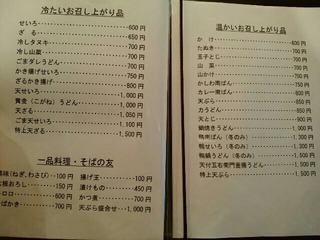 冷たいお召し上がり品
せいろ 600円
ざる 650円
冷しタヌキ 700円
冷し山菜 700円
ごまダレうどん 700円
かき揚げせいろ 750円
ざるかき揚げ 800円
天せいろ 1,000円
黄金(こがね)うどん 1,000円
天ざる 1,050円
ごま天せいろ 1,100円
特上天ざる 1,500円
一品料理・そばの友
薬味(ねぎ,わさび) 100円
揚げ玉 100円
大根おろし 150円
漬けもの 450円
トロロ 600円
かつ煮 700円
天ぷら盛合せ 1,000円
温かいお召し上がり品
かけ 600円
たぬき
玉子とじ
山菜
山かけ
かしわ南ばん
カレー南ばん
天ぷら
力うどん
天とじ
鍋焼きうどん
鴨南ばん(冬のみ) 1,300円
鴨せいろ(冬のみ) 1,300円
鴨鍋うどん(冬のみ) 1,500円
天付五右衛門釜揚うどん 1,500円
特上天ぷら 1,500円